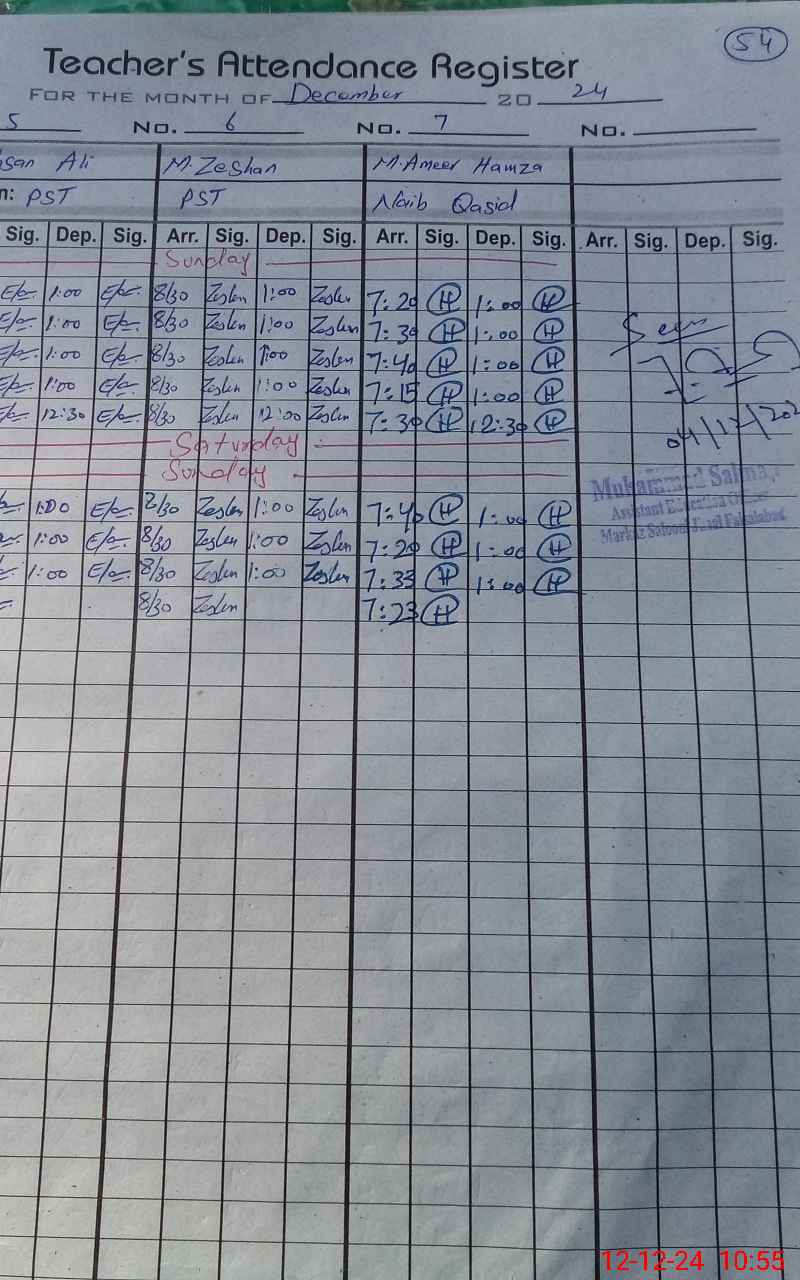 54
Teacher's Attendance Register
FOR THE MONTH OF December 20 24
5 No. 6 No. 7 No.
san Ali M. Zeshan M. Ameer Hamza
n: PST PST Naib Qasid
Sig. Dep. Sig. Arr. Sig. Dep. Sig. Arr. Sig. Dep. Sig. Arr. Sig. Dep. Sig.
Sunday
1:00 8/30 Zeshn 1:00 Zeshn 7:20 H 1:00 H
1:00 8/30 Zeshn 1:00 Zeshn 7:30 H 1:00 H
Seen
1:00 8/30 Zeshn 1:00 Zeshn 7:40 H 1:00 H
1:00 8/30 Zeshn 1:00 Zeshn 7:15 H 1:00 H
12:30 8/30 Zeshn 12:00 Zeshn 7:30 H 12:30 H
04/12/202
Saturday
Sunday
Muhammad
Assistant Education
Markaz
1:00 8/30 Zeshn 1:00 Zeshn 7:40 H 1:00 H
1:00 8/30 Zeshn 1:00 Zeshn 7:20 H 1:00 H
1:00 8/30 Zeshn 1:00 Zeshn 7:33 H 1:00 H
8/30 Zeshn 7:23 H
12-12-24 10:55